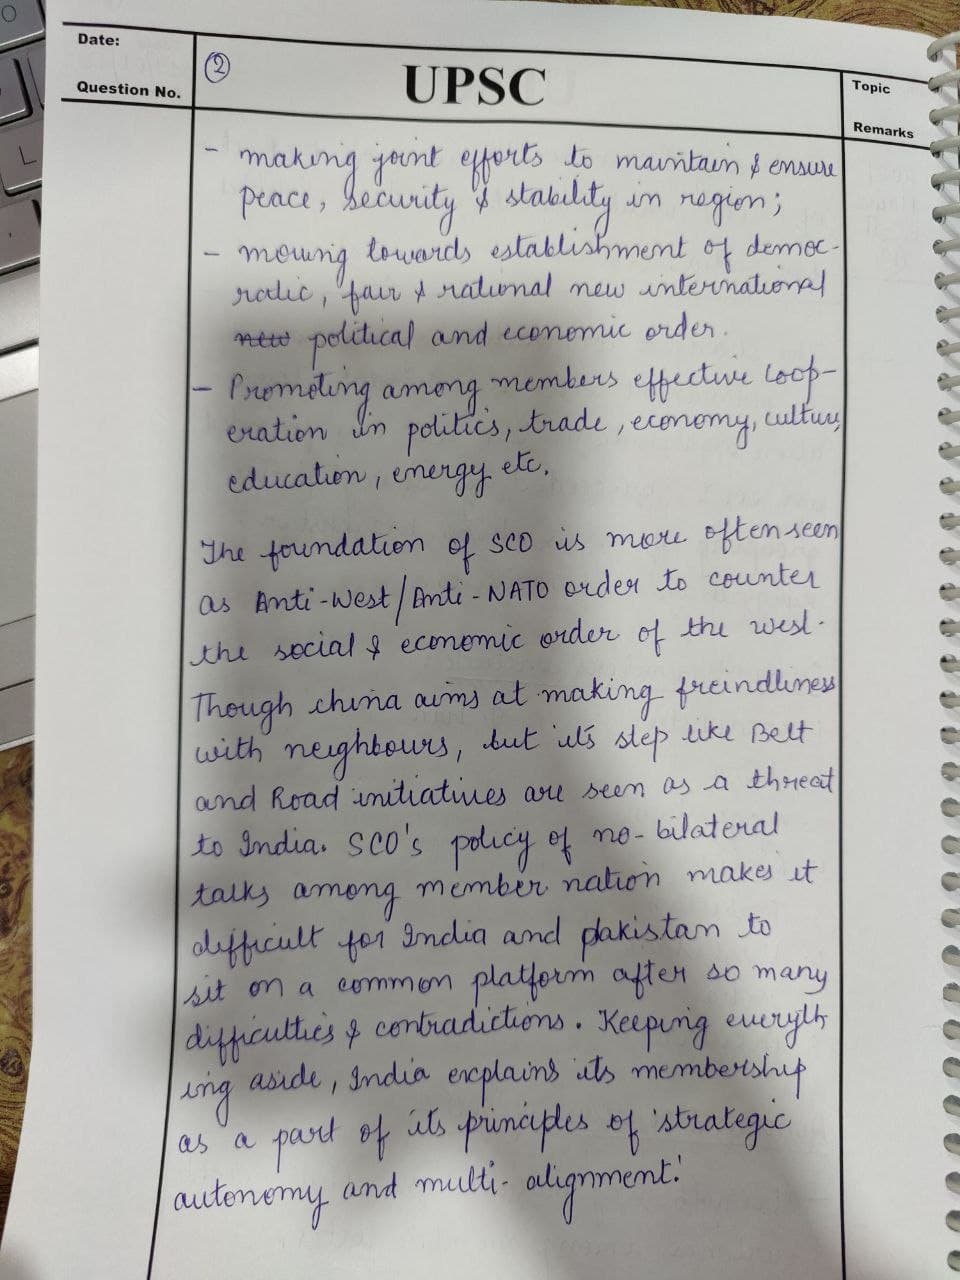 Date:
Question No.
2
UPSC
Topic
Remarks
- making joint efforts to maintain & ensure
peace, security & stability in region;
- moving towards establishment of democ-
ratic, fair & rational new international
new political and economic order.
- Promoting among members effective coop-
eration in politics, trade, economy, culture,
education, energy etc.
The foundation of SCO is more often seen
as Anti-West/Anti-NATO order to counter
the social & economic order of the west.
Though china aims at making freindliness
with neighbours, but it's step like Belt
and Road initiatives are seen as a threat
to India. SCO's policy of no-bilateral
talks among member nation makes it
difficult for India and pakistan to
sit on a common platform after so many
difficulties & contradictions. Keeping everyth
ing aside, India explains its membership
as a part of its principles of 'strategic
autonomy and multi-alignment.'